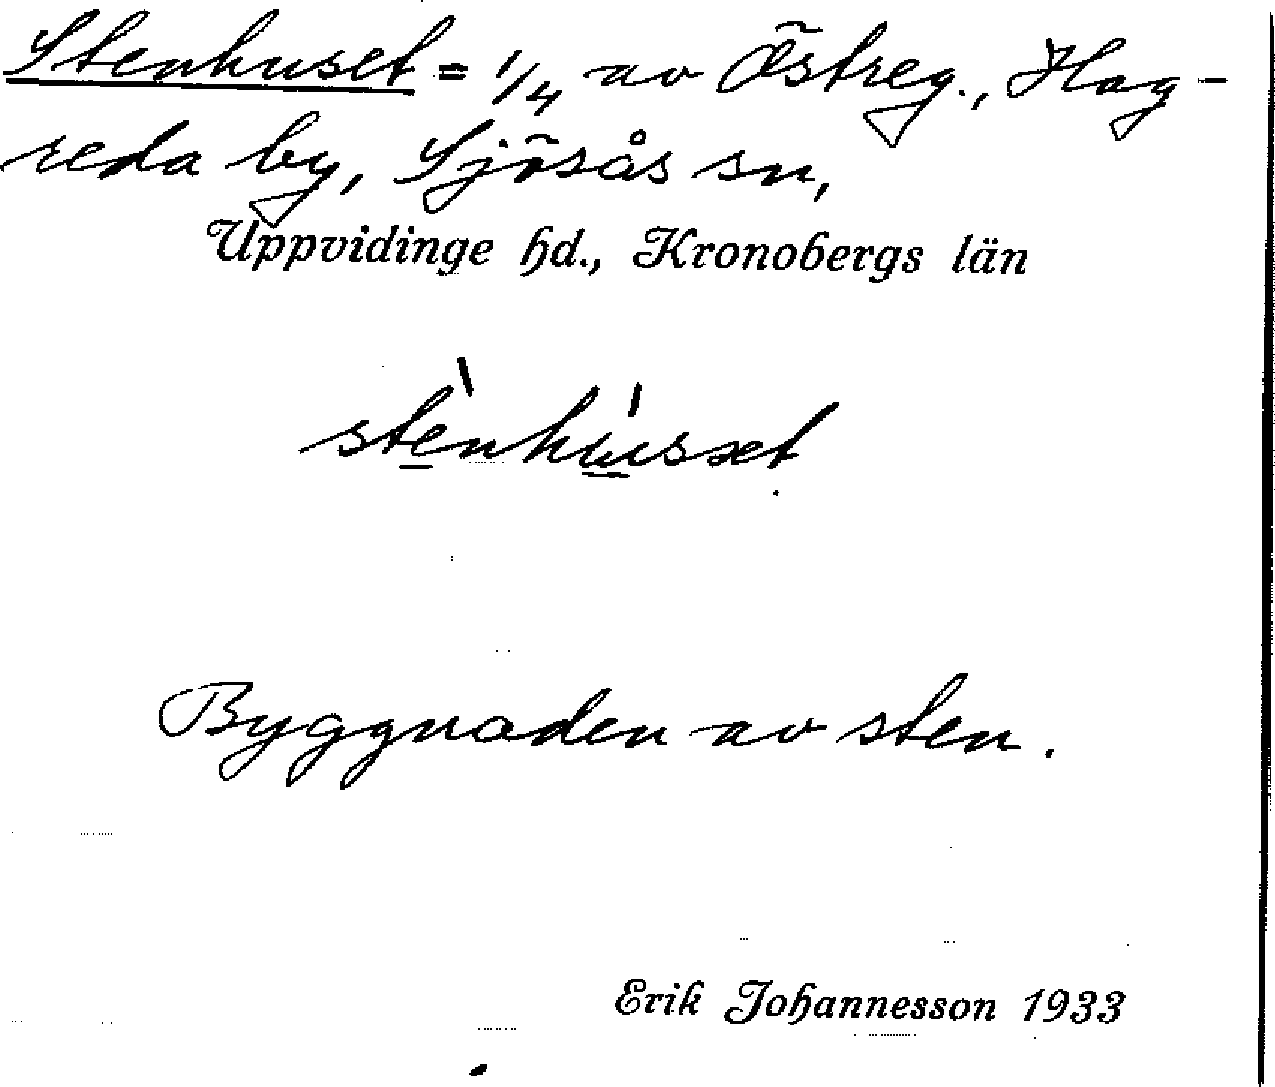 Stenhuset = 1/4 av Östreg., Hag-
reda by, Sjösås sn,
Uppvidinge hd., Kronobergs län
stè̲nhú̲sæt
Byggnaden av sten.
Erik Johannesson 1933